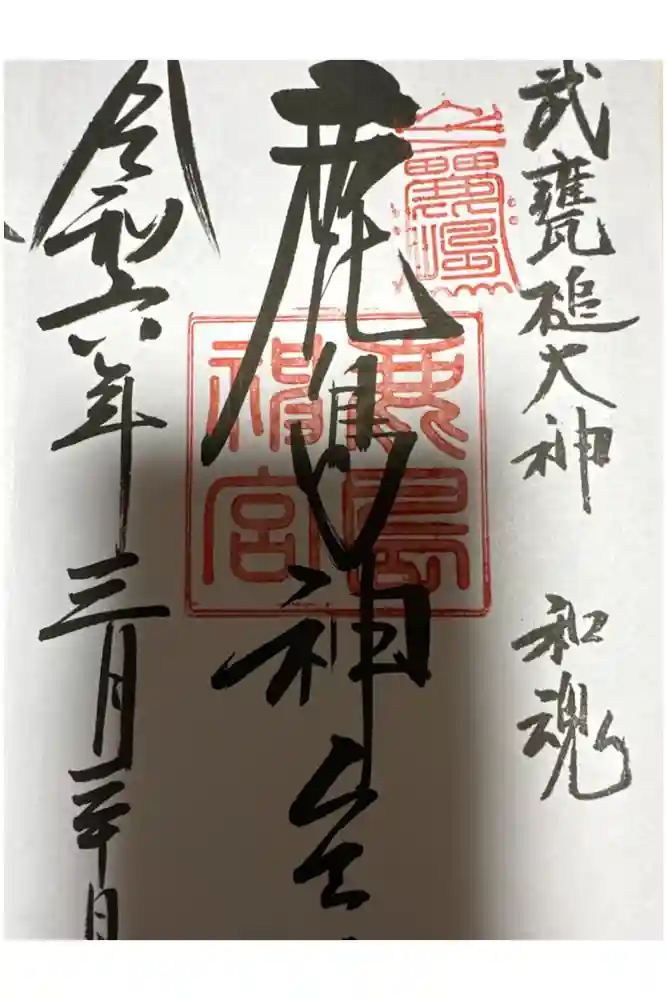 武甕槌大神 和魂
鹿島神宮
鹿島神宮
令和六年三月二十日